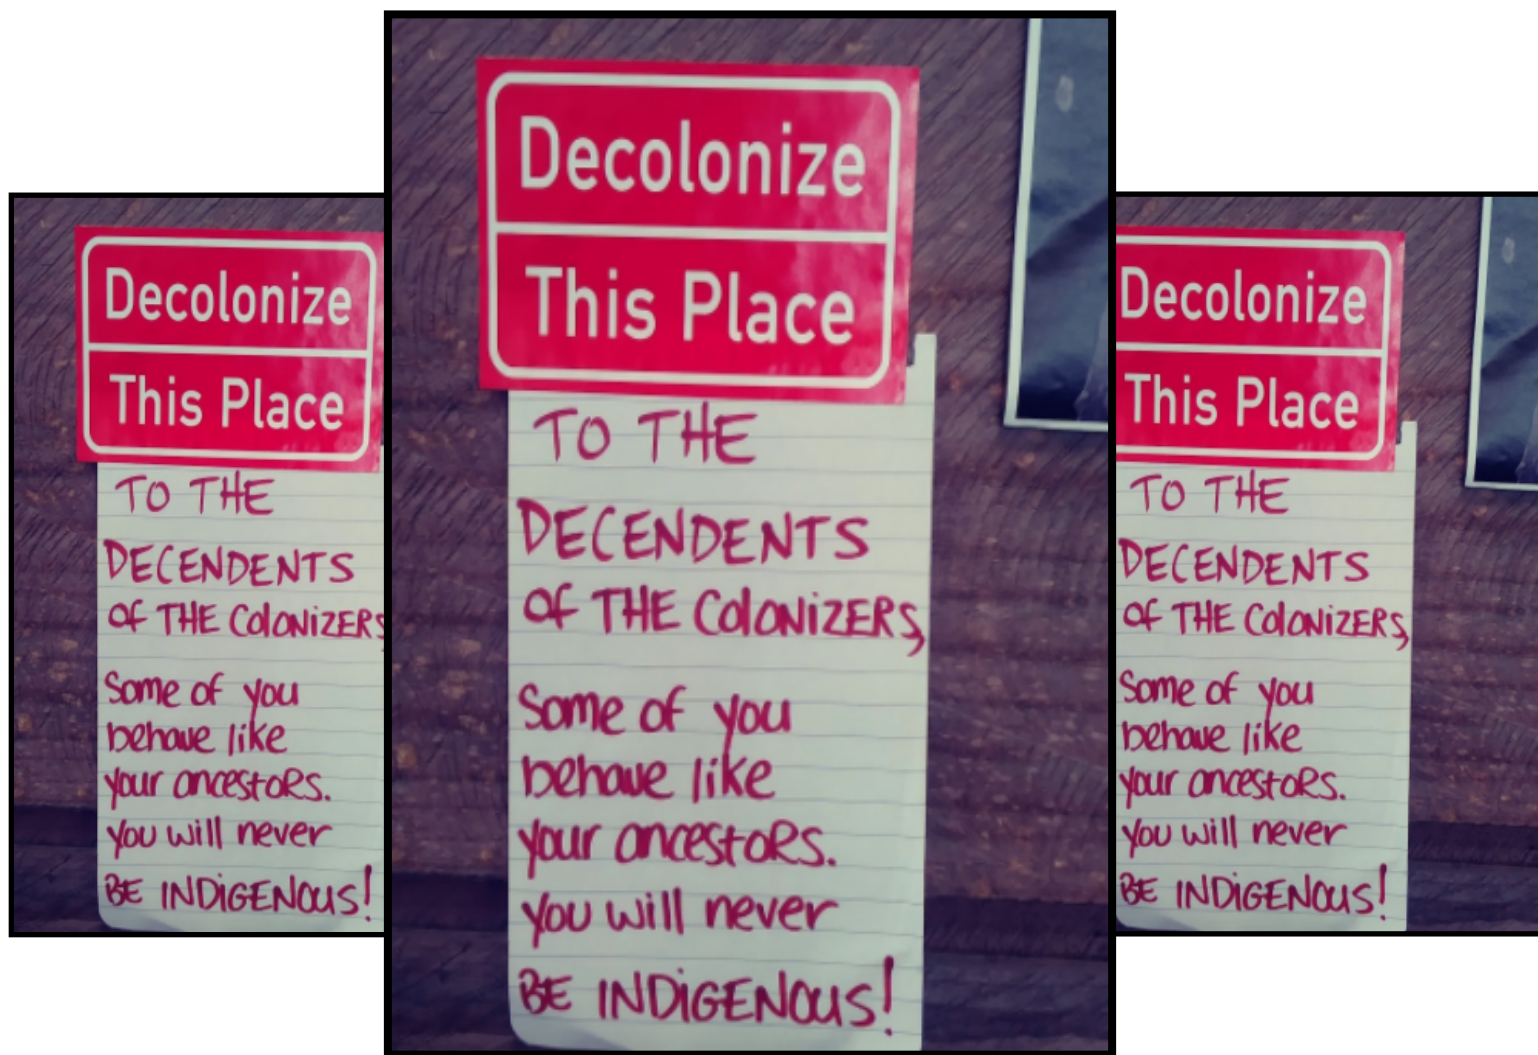 Decolonize
This Place
TO THE
DECENDENTS
OF THE COLONIZERS
Some of you
behave like
your ancestors.
You will never
BE INDIGENOUS!
Decolonize
This Place
TO THE
DECENDENTS
OF THE COLONIZERS,
Some of you
behave like
your ancestors.
You will never
BE INDIGENOUS!
Decolonize
This Place
TO THE
DECENDENTS
OF THE COLONIZERS,
Some of you
behave like
your ancestors.
You will never
BE INDIGENOUS!